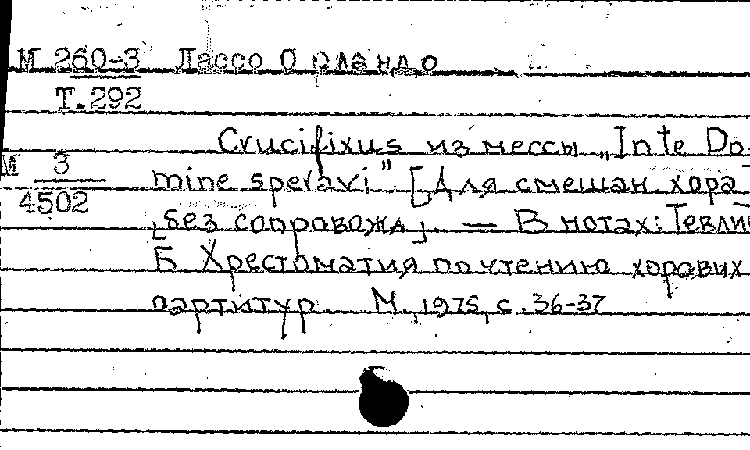 М 260-3 Лассо Орландо
Т.292
Crucifixus из мессы „Inte Do-
М 3
4502
mine speravi" [Для смешан хора
[без сопровожд]. — В нотах: Тевлин
Б Хрестоматия по чтению хоравих
партитур М, 1975, с. 36-37